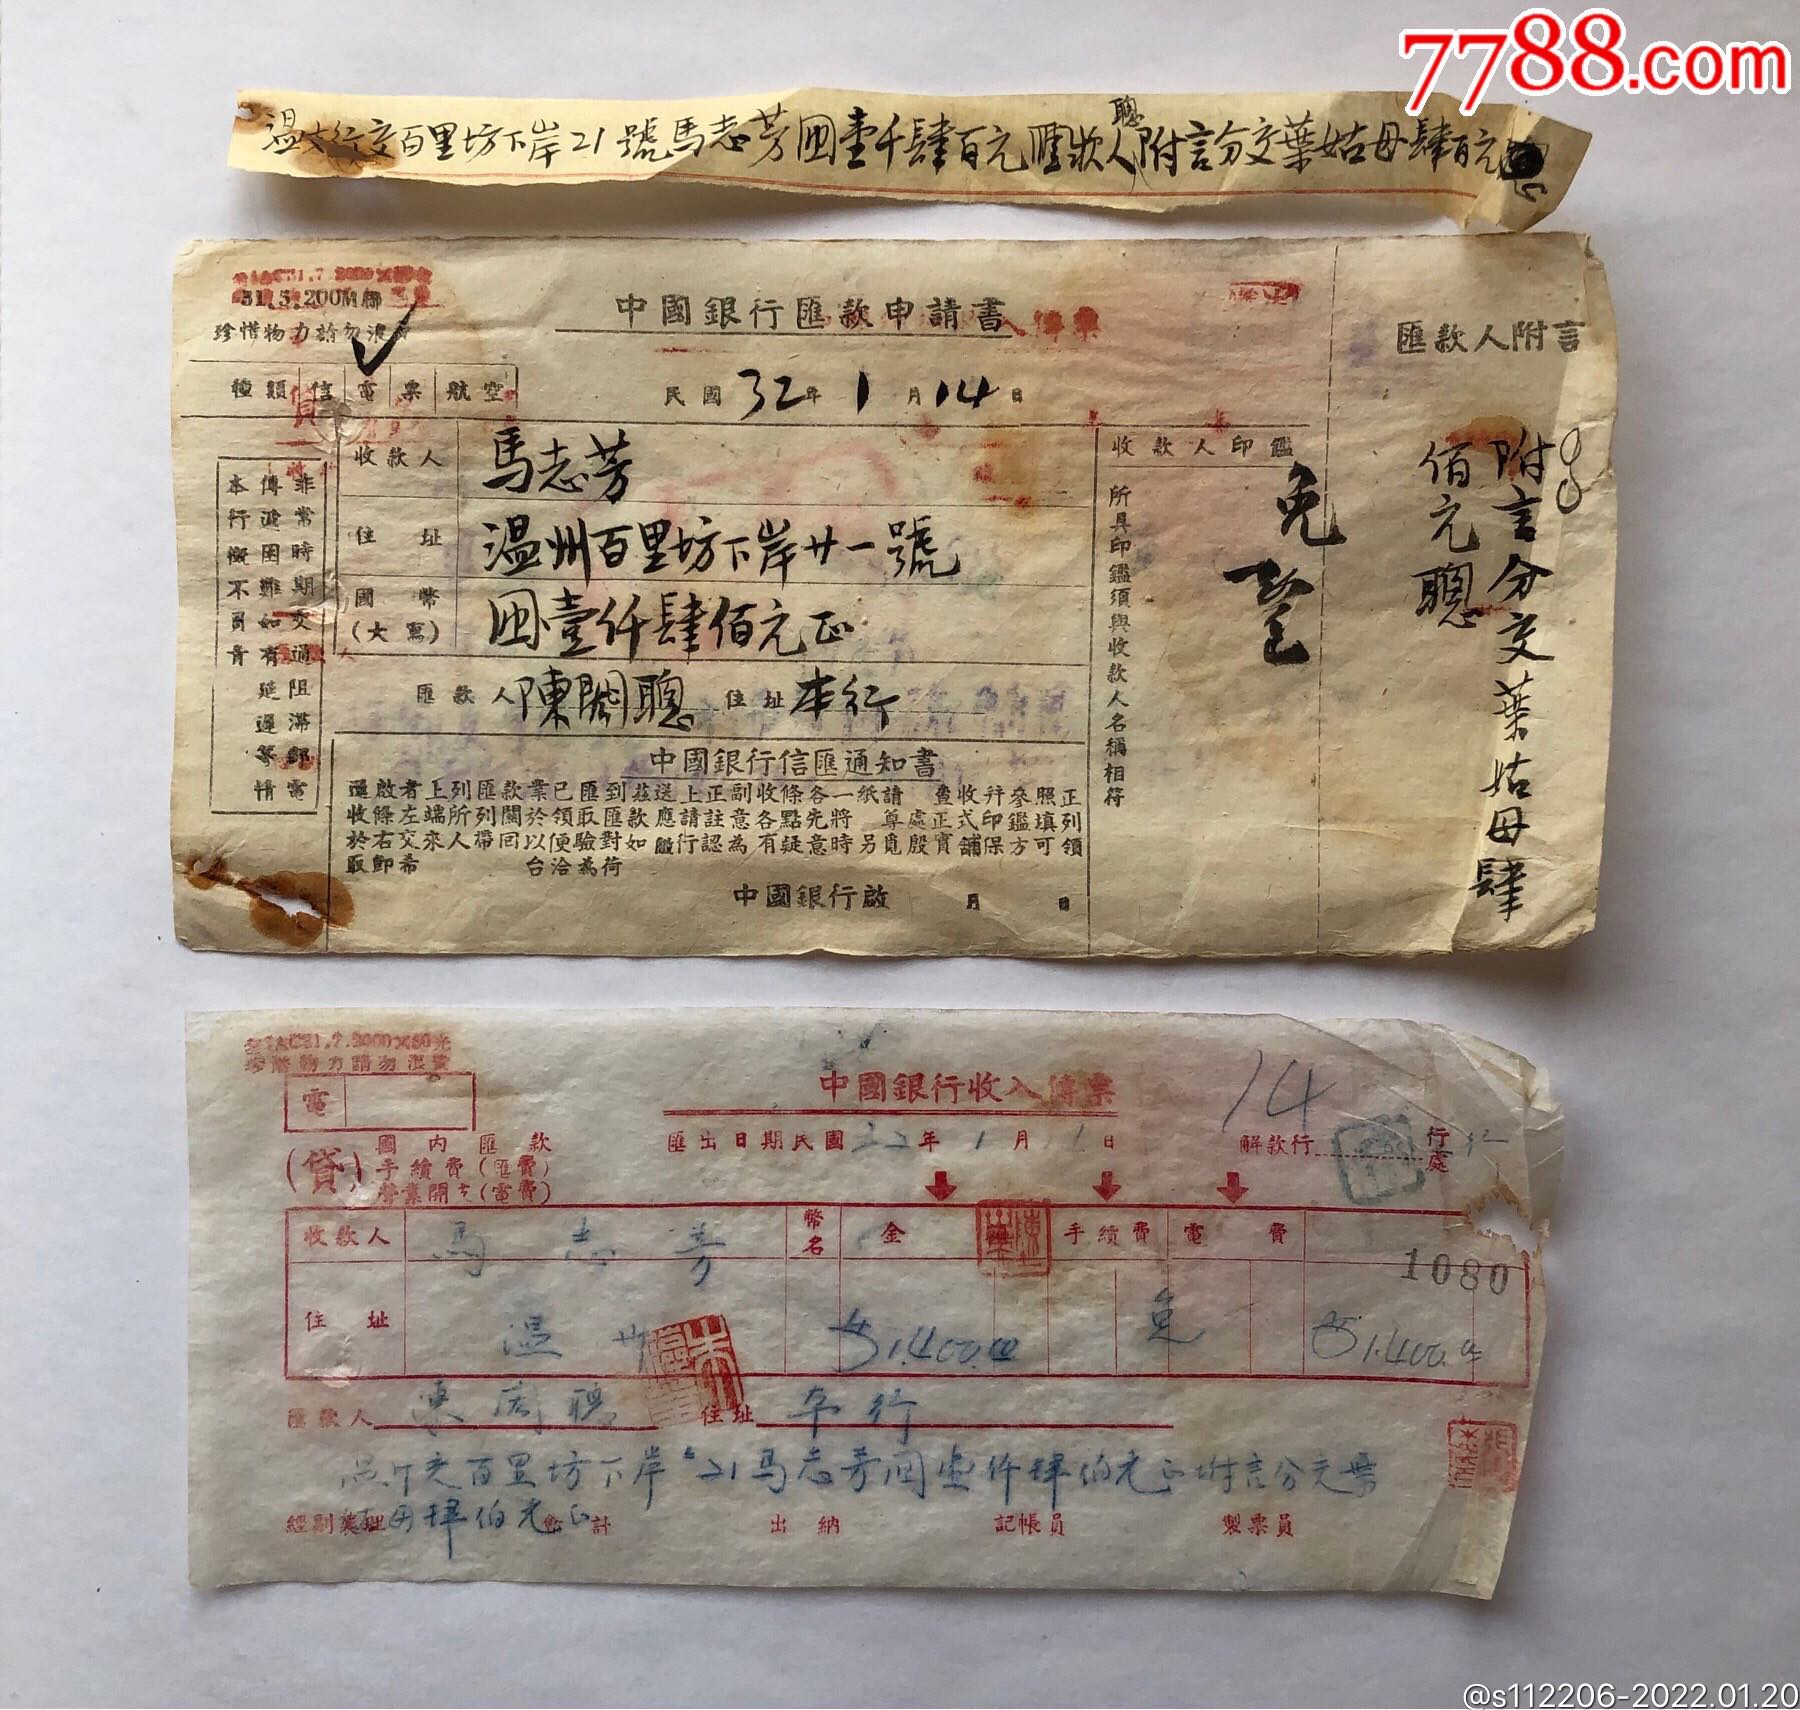 7788.com
聰
溫支行交百里坊下岸21號馬志芳國壹千肆百元匯欵人附言分交葉姑母肆百元
31.5.200M
珍惜物力請勿浪
中國銀行匯款申請書
匯款人附言
種類 信 電 票 航空
民國32年1月14日
收款人 馬志芳
住址 溫州百里坊下岸廿一號
國幣(大寫) 國壹仟肆佰元正
匯款人 陳閣聰 住址 本行
非常時期交通阻滯郵電
傳遞困難如有延遲等情
本行概不負責
收款人印鑑
所具印鑑須與收款人名稱相符
免
附言分交葉姑母肆
佰元聰
中國銀行信匯通知書
逕啟者上列匯款業已匯到茲送上正副收條各一紙請 查收幷參照正
收條左端所列關於領取匯款應請註意各點先將 尊處正式印鑑填列
於右交來人帶回以便驗對如 行認為有疑意時另覓殷實舖保方可領
取卽希 台洽為荷
中國銀行啟 月 日
珍惜物力請勿浪費
電
中國銀行收入傳票
14
(貸) 國內匯款
手續費(匯費)
(電費)
匯出日期民國32年1月1日
解款行 行處
收款人 馬志芳
幣名 金 手續費 電費
1080
住址 溫州
1,400.00 免 1,400.00
匯款人 住址 本行
百里坊下岸21馬志芳國壹仟肆佰元正附言分交葉
姑母肆佰元正
會計 出納 記帳員 製票員
@s112206-2022.01.20